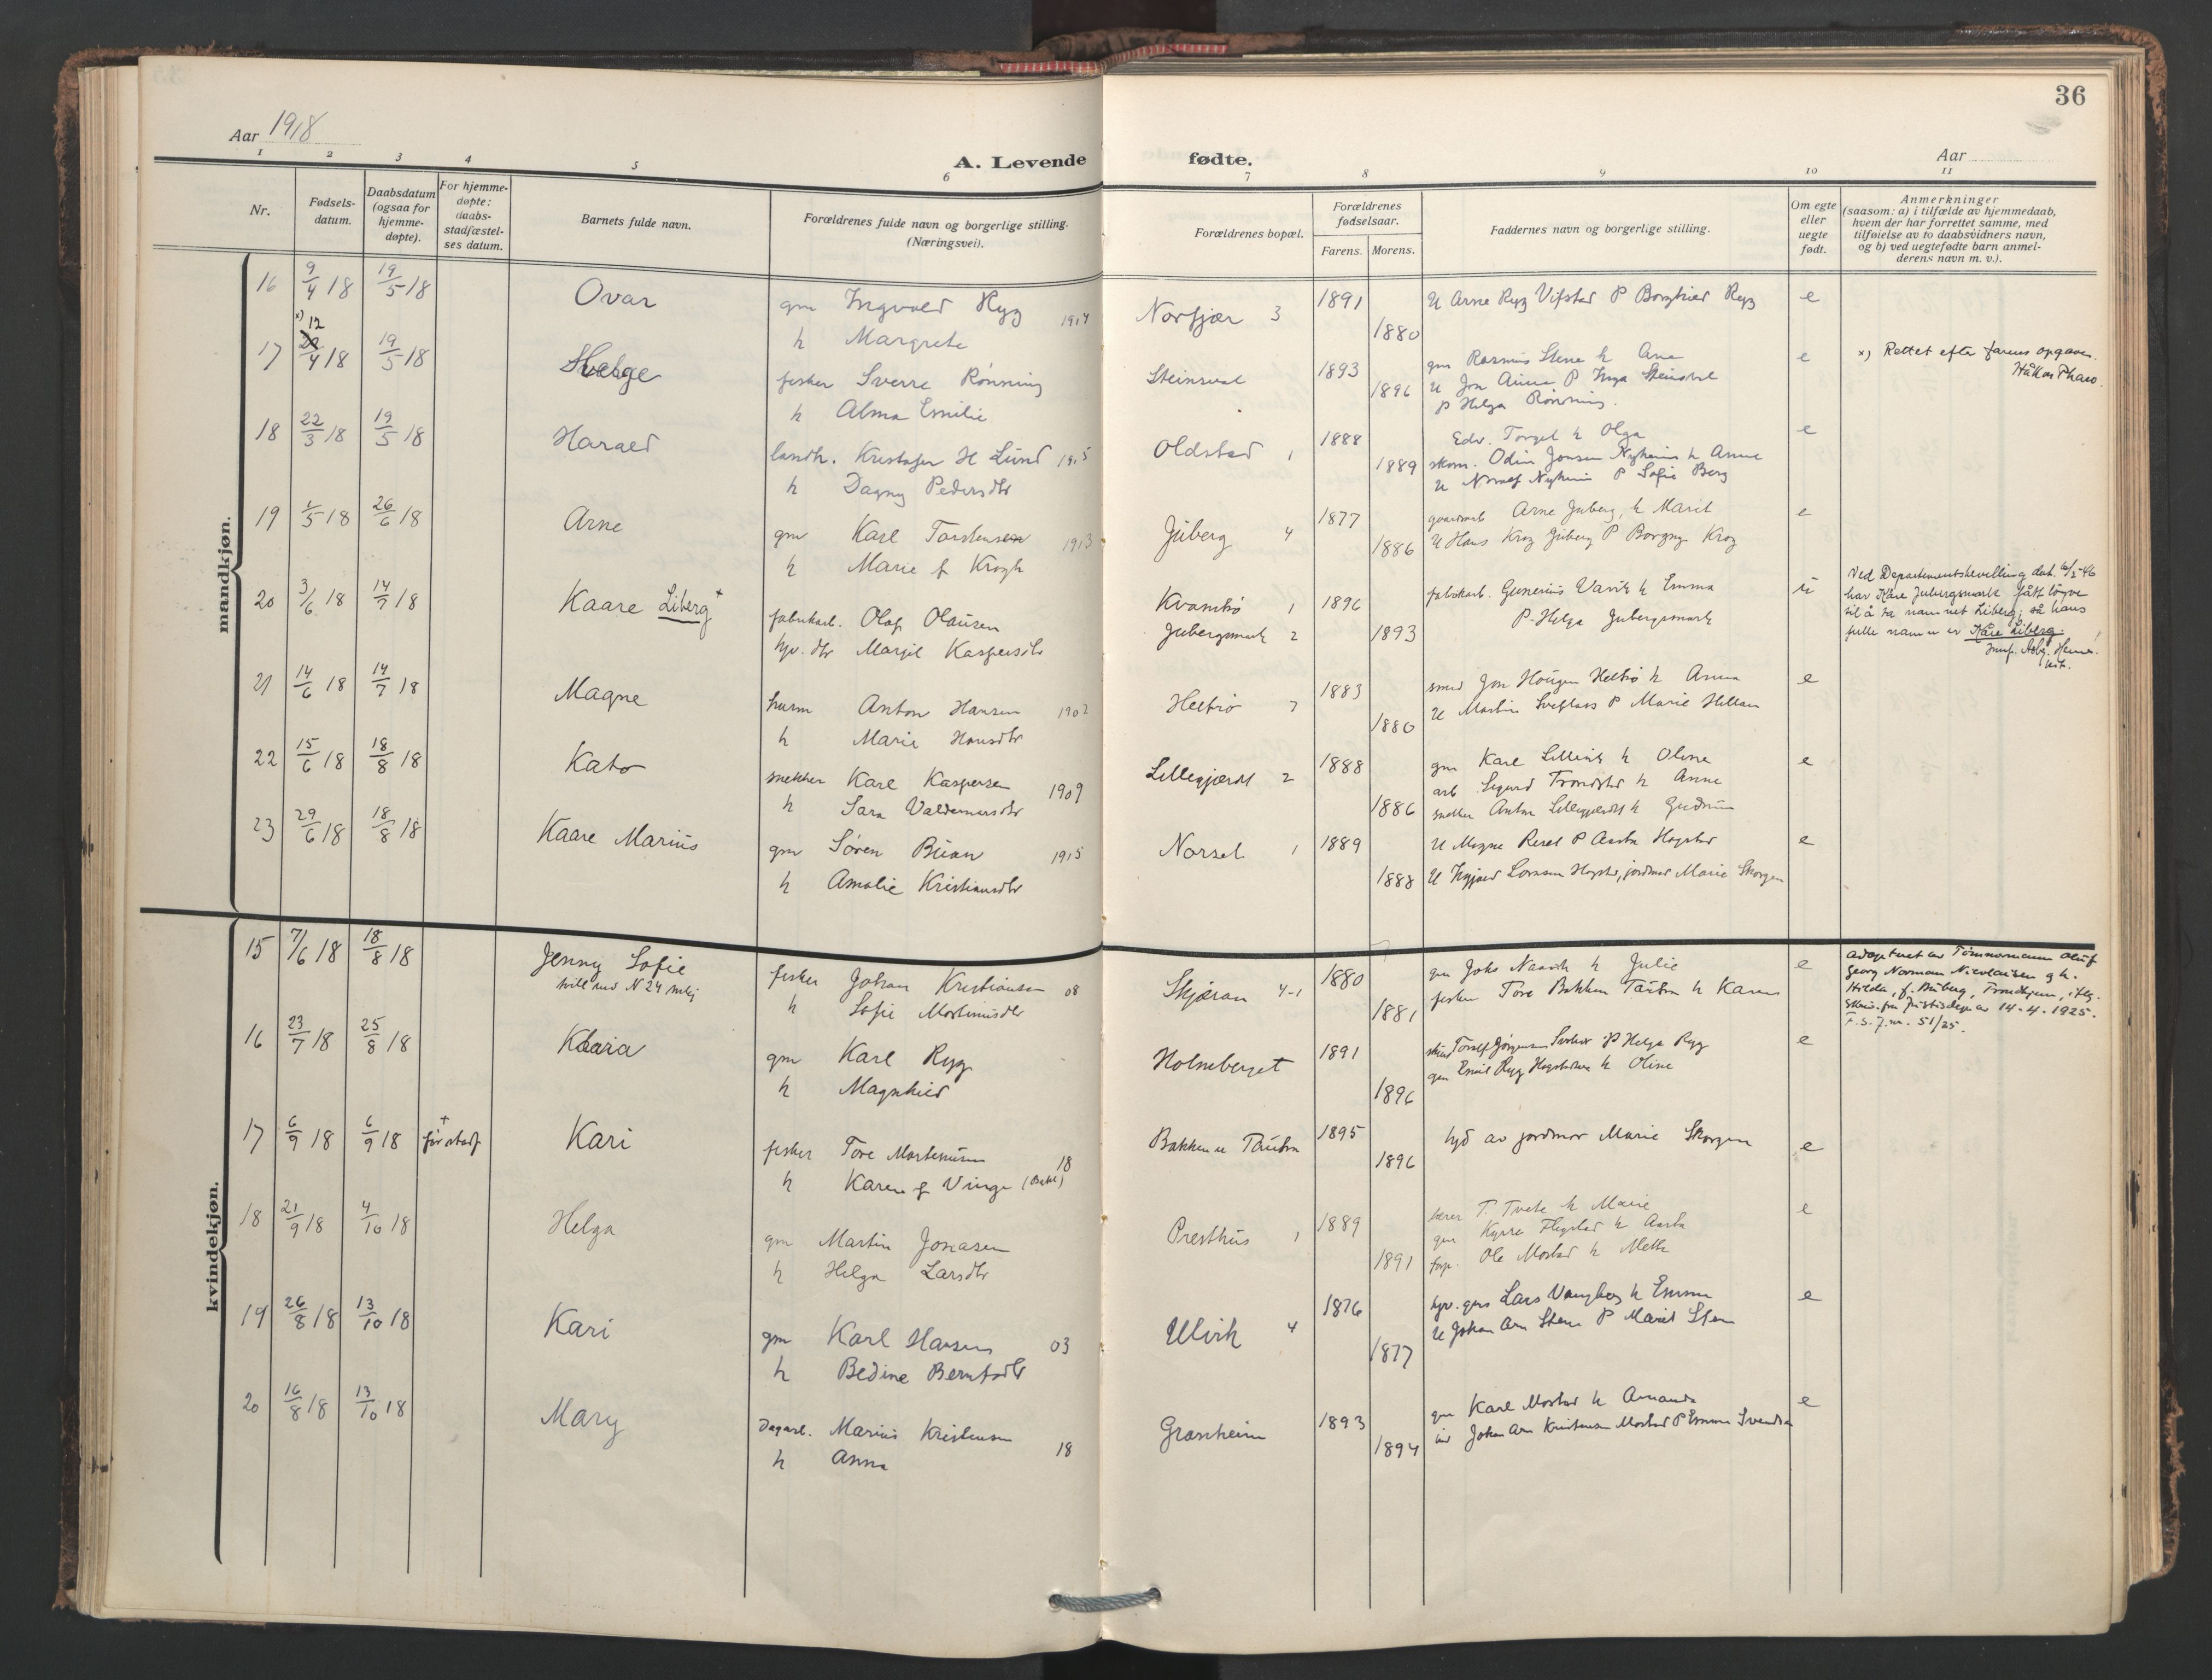 36
Aar 1918
A. Levende fødte.
Aar
1 2 3 4 5 6 7 8 9 10 11
Nr.
Fødsels-
datum.
Daabsdatum
(ogsaa for
hjemme-
døpte).
For hjemme-
døpte:
daabs-
stadfæstel-
ses datum.
Barnets fulde navn.
Forældrenes fulde navn og borgerlige stilling.
(Næringsvei).
Forældrenes bopæl.
Forældrenes
fødselsaar.
Farens. Morens.
Faddernes navn og borgerlige stilling.
Om egte
eller
uegte
født.
Anmerkninger
(saasom: a) i tilfælde av hjemmedaab,
hvem der har forrettet samme, med
tilføielse av to daabsvidners navn,
og b) ved uegtefødte barn anmel-
derens navn m. v.).
mandkjøn.
16 9/4 18 19/5 18 Ovar gm Ingvald Ryg 1914 Norfjær 3 1891 U Arne Ryg Vifstad P Borghild Ryg e
h Margrete 1880
x) 12
17 4 18 19/5 18 Helge fisker Sverre Rønning Steinsvol 1893 gm Rasmus Stene h Ane e x) Rettet efter farens opgave.
h Alma Emilie 1896 U Jon Aune P Inga Steinsvol
P Helga Rønning.
18 22/3 18 19/5 18 Harald landh. Kristofer H Lund 1915 Oldstad 1 1888 Edv. Torgel h Olga e
h Dagny Pedersdtr 1889 skom. Odin Jonsen Nyheim h Anne
U Nyheim P Sofie Berg
19 1/5 18 26/6 18 Arne gm Karl Torstensen 1913 Juberg 4 1877 Arne Juberg, h Marit e
h Marie f Krogh 1886 U Hans Krog Juberg P Borgny Krog
20 3/6 18 14/7 18 Kaare Liberg + fabrikarb. Olaf Olausen Kvamhø 1 1896 fabrikarb. Gunerius Vavik h Emma u
hjv. dtr Marjit Kaspersdtr Jubergsmark 2 1893 P. Helga Jubergsmark
Ved Departementsbevilling dat. 6/2-46
har Kåre Jubergsmark fått løyve
til å ta namnet Liberg; så hans
fulle namn er Kåre Liberg.
21 14/6 18 14/7 18 Magne husm Anton Hansen 1902 Heltrø 7 1883 smed Jon Haugen Heltrø h Anna e
h Marie Hansdtr 1880 U Martin P Marie
22 15/6 18 18/8 18 Kato snekker Karl Kaspersen 1909 Lillegjerdt 2 1888 gm Karl Lillevik h Oline e
h Sara Valdemarsdtr 1886 arb Sigurd Trondstad h Anne
snekker Anton Lillegjerdt h Gudrun
23 29/6 18 18/8 18 Kaare Marius gm Søren Buan 1915 Norset 1 1889 U Magne P Aasta Hogstad e
h Amalie Kristiansdtr 1888 U Hogstad, jordmor Marie Skorgen
kvindekjøn.
15 7/6 18 18/8 18 Jenny Sofie fisker Johan Kristiansen 08 Skjæran 4-1 1880 gm Johs Naavik h Julie e
tvill med N 24 h Sofie Martinusdtr 1881 fisker Tore Bakken Tautra h Karen
adoptert av Tømmermann Oluf
Georg Norman Nicolaisen g h.
Hilda, f. Buberg, Trondhjem, iflg.
skriv. fra Justisdep av 14-4-1925.
F.S.J.nr. 51/25.
16 23/7 18 25/8 18 Klaria gm Karl Ryg Holmeberget 1891 Toralf Jørgensen P Helga Ryg e
h Magnhild 1896 gm Emil Ryg h Oline
17 6/9 18 6/9 18 + før stadf Kari fisker Tore Martenusen 18 Bakken Tautra 1895 hjd av jordmor Marie Skorgen e
h Karen f Vinge 1896
18 21/9 18 4/10 18 Helga gm Martin Jonasen Presthus 1 1889 lærer T. Tvete h Marie e
h Helga Larsdtr 1891 gm Kyrre Flegstad h Aasta
forp. Ole Mostad h Meth
19 26/8 18 13/10 18 Kari gm Karl Hansen 03 Ulvik 4 1876 Lars Vangberg h Emma e
h Bedine Berntsdtr 1877 U Johan Arn Stene P Marit Stene
20 16/8 18 13/10 18 Mary Dagarb. Marius Kristensen 18 Granheim 1893 gm Karl Mostad h Amanda e
h Anna 1894 Johan Arn Kristensen Mostad P Emma Svendsen